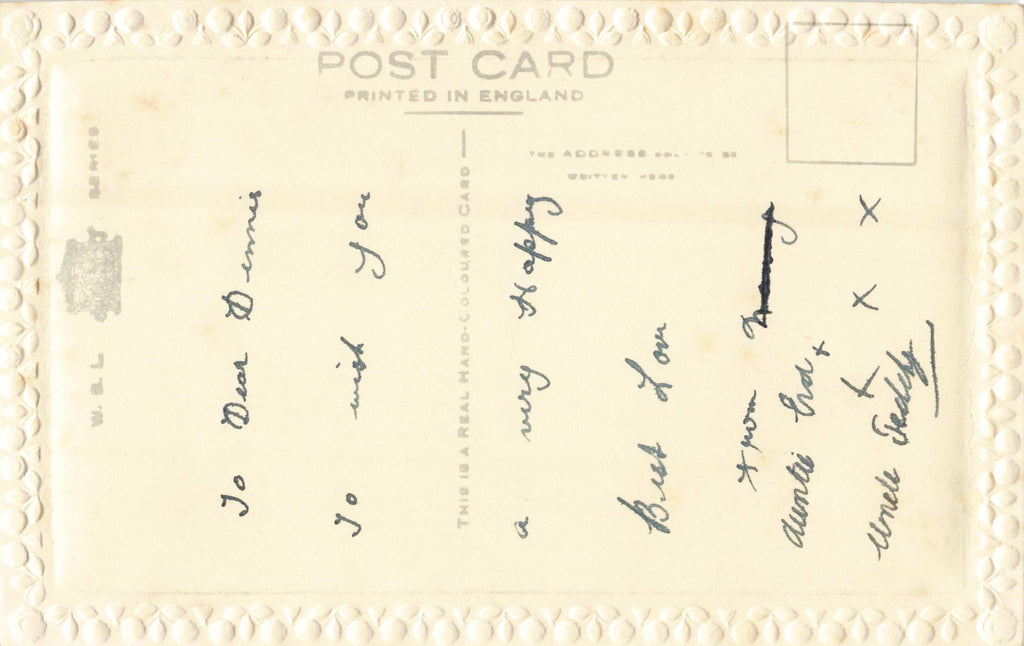 POST CARD
PRINTED IN ENGLAND
THE ADDRESS ONLY TO BE
WRITTEN HERE
THIS IS A REAL HAND-COLOURED CARD
W. B. L SERIES
To Dear Dennis
To wish You
a very Happy
Best Love
from
Auntie +
Uncle Teddy
x x x